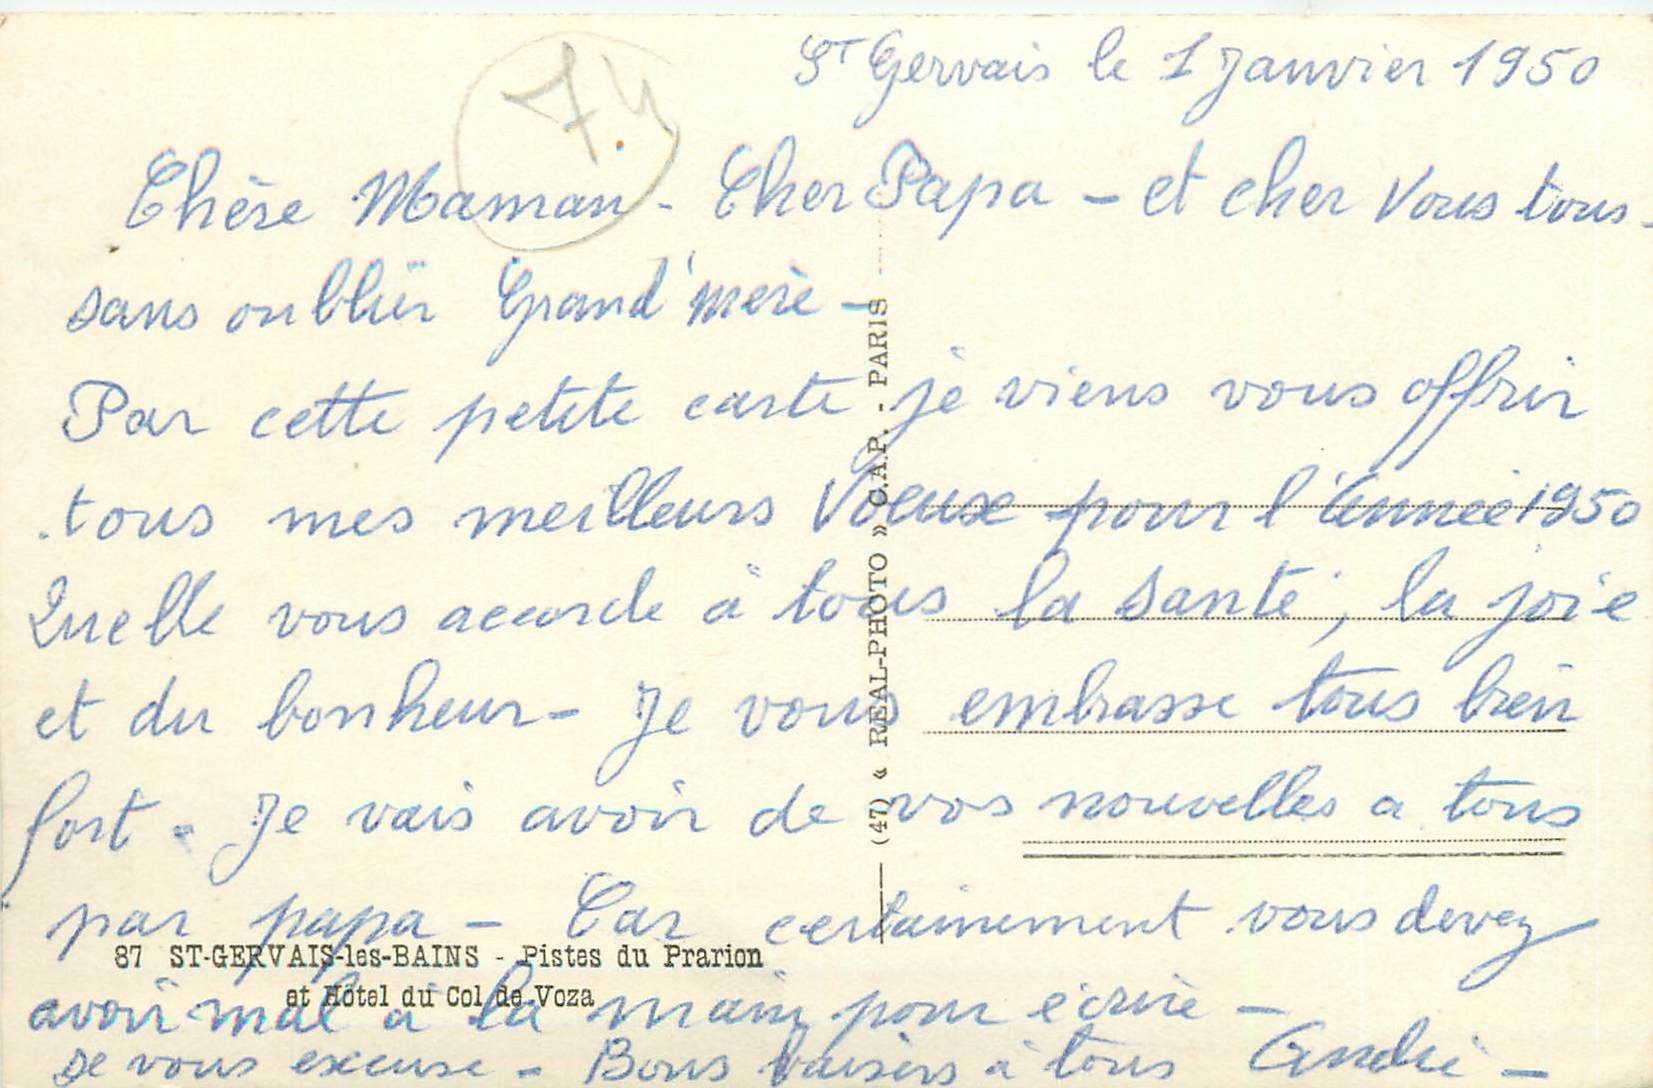 St Gervais le 1 Janvier 1950
74
Chère Maman - Cher Papa - et cher Vous tous -
sans oublier Grand'mère -
Par cette petite carte je viens vous offrir
tous mes meilleurs Voeux pour l'Année 1950
Quelle vous accorde à tous la santé, la joie
et du bonheur - Je vous embrasse tous bien
fort - Je vais avoir de vos nouvelles a tous
par papa - Car certainement vous devez
avoir mal a la main pour écrire -
Je vous excuse - Bons baisers à tous André -
87 ST-GERVAIS-les-BAINS - Pistes du Prarion
et Hôtel du Col de Voza
(47) « REAL-PHOTO » C.A.P. - PARIS